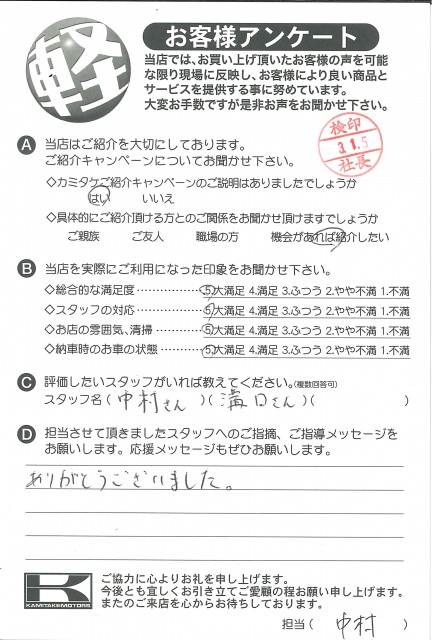 軽
お客様アンケート
当店では、お買い上げ頂いたお客様の声を可能
な限り現場に反映し、お客様により良い商品と
サービスを提供する事に努めています。
大変お手数ですが是非お声をお聞かせ下さい。
検印
3.1.5
社長
A 当店はご紹介を大切にしております。
ご紹介キャンペーンについてお聞かせ下さい。
◇カミタケご紹介キャンペーンのご説明はありましたでしょうか
はい いいえ
◇具体的にご紹介頂ける方とのご関係をお聞かせ頂けますでしょうか
ご親族 ご友人 職場の方 機会があれば紹介したい
B 当店を実際にご利用になった印象をお聞かせ下さい。
◇総合的な満足度……………5.大満足 4.満足 3.ふつう 2.やや不満 1.不満
◇スタッフの対応……………5.大満足 4.満足 3.ふつう 2.やや不満 1.不満
◇お店の雰囲気、清掃…………5.大満足 4.満足 3.ふつう 2.やや不満 1.不満
◇納車時のお車の状態…………5.大満足 4.満足 3.ふつう 2.やや不満 1.不満
C 評価したいスタッフがいれば教えてください。(複数回答可)
スタッフ名(中村さん)(溝口さん)( )
D 担当させて頂きましたスタッフへのご指摘、ご指導メッセージを
お願いします。応援メッセージもぜひお願いします。
ありがとうございました。
K
KAMITAKEMOTORS
ご協力に心よりお礼を申し上げます。
今後とも宜しくお引き立てご愛顧の程お願い申し上げます。
またのご来店を心からお待ちしております。
担当( 中村 )